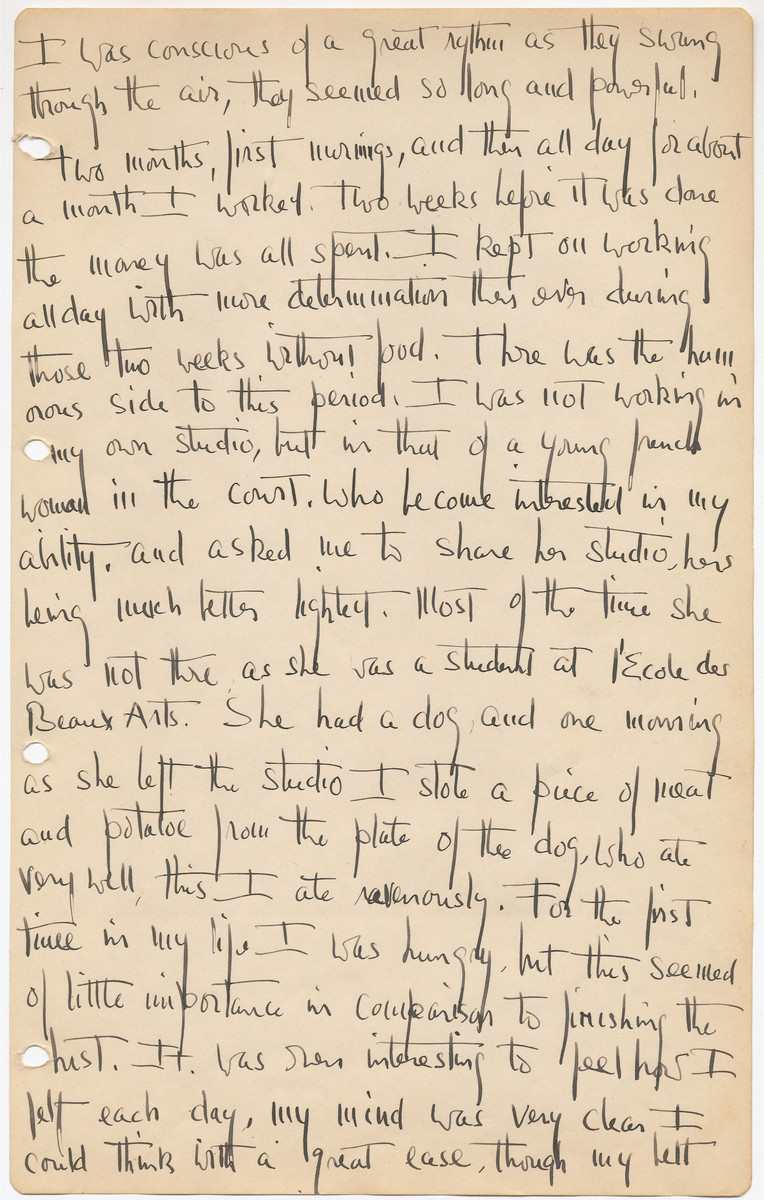 I was conscious of a great rythm as they swung
through the air, they seemed so long and powerful.
Two months, first mornings, and then all day for about
a month I worked. Two weeks before it was done
the money was all spent. I kept on working
all day with more determination then ever during
those two weeks without food. There was the hum
orous side to this period. I was not working in
my own studio, but in that of a young french
woman in the court. Who become interested in my
ability. and asked me to share her studio, hers
being much better lighted. Most of the time she
was not there, as she was a student at l'Ecole des
Beaux Arts. She had a dog, and one morning
as she left the studio I stole a piece of meat
and potatoe from the plate of the dog, who ate
very well, this I ate ravenously. For the first
time in my life I was hungry, but this seemed
of little importance in comparison to finishing the
bust. It was even interesting to feel how I
felt each day, my mind was very clear I
could think with a great ease, though my left